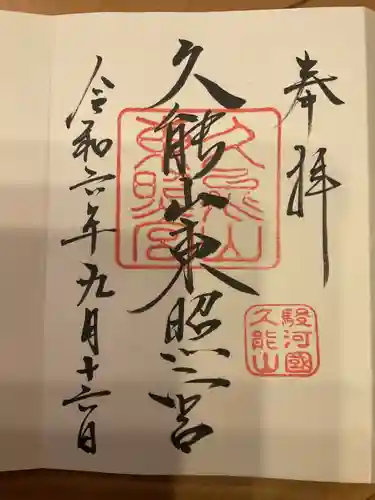 奉拝
久能山東照宮
令和六年九月十六日
久能山
東照宮
駿河國
久能山